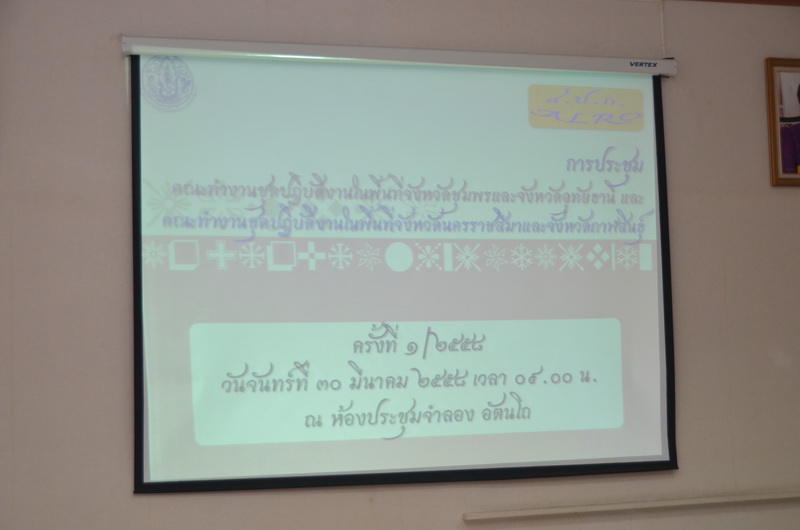 VERTEX
ส.ป.ก.
ALRO
การประชุม
คณะทำงานชุดปฏิบัติงานในพื้นที่จังหวัดชุมพรและจังหวัดอุทัยธานี และ
คณะทำงานชุดปฏิบัติงานในพื้นที่จังหวัดนครราชสีมาและจังหวัดกาฬสินธุ์
ครั้งที่ ๑/๒๕๕๘
วันจันทร์ที่ ๓๐ มีนาคม ๒๕๕๘ เวลา ๐๙.๐๐ น.
ณ ห้องประชุมจำลอง อัตนโถ